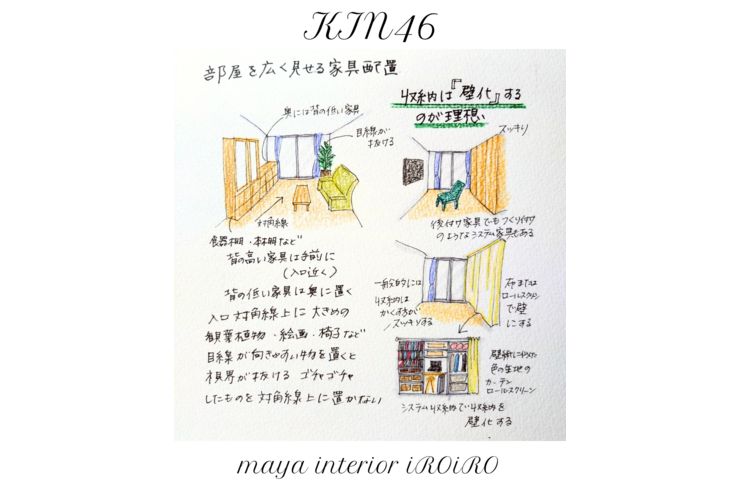 KIN46
部屋を広く見せる家具配置
奥には背の低い家具
目線が
抜ける
対角線
食器棚・本棚など
背の高い家具は手前に
(入口近く)
背の低い家具は奥に置く
入口対角線上に大きめの
観葉植物・絵画・椅子など
目線が向きやすい物を置くと
視界が抜ける ゴチャゴチャ
したものを対角線上に置かない
収納は『壁化』する
のが理想
スッキリ
後付け家具でもつくり付け
のようなシステム家具もある
一般的には
収納は
かくす方が
スッキリする
布または
ロールスクリーン
で壁
にする
壁紙に
色の生地の
カーテン
ロールスクリーン
システム収納で収納を
壁化する
maya interior iROiRO